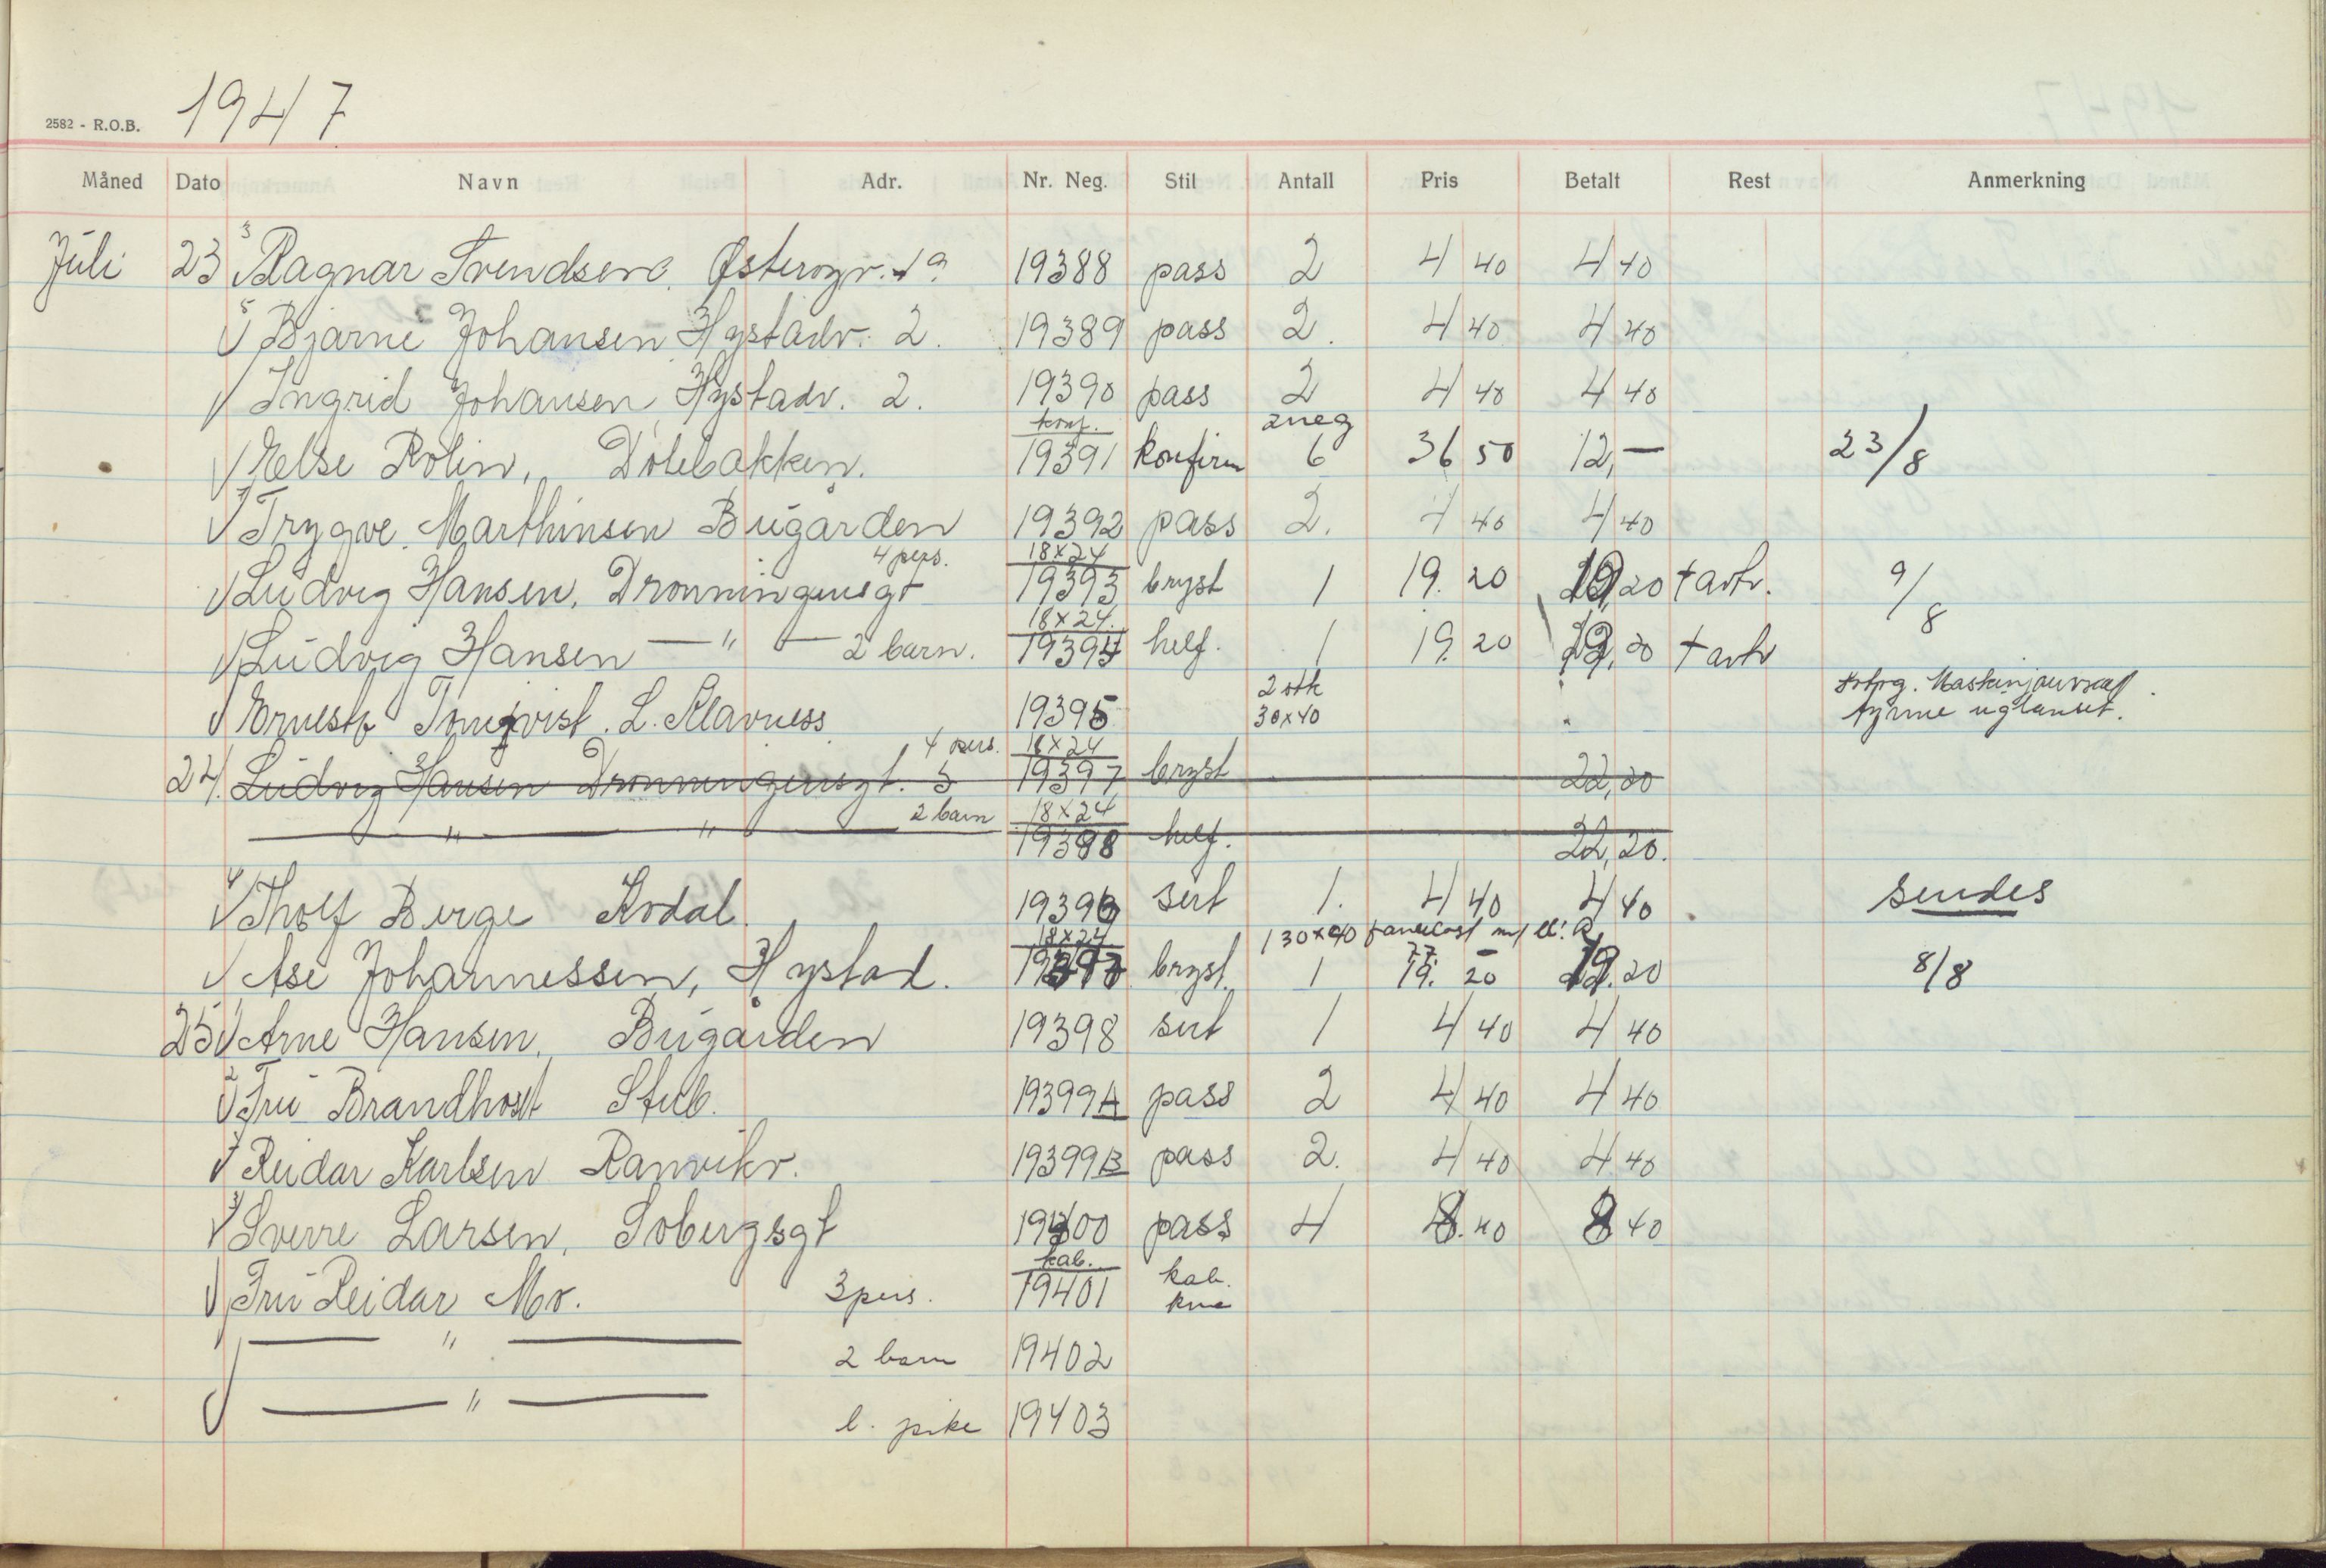 1947
2582 - R.O.B.
Måned Dato Navn Adr. Nr. Neg. Stil Antall Pris Betalt Rest Anmerkning
Juli 23 3 Ragnar Svendsen, Østerøyv. 19. 19388 pass 2 4 40 4 40
5 Bjarne Johansen Hystadv. 2. 19389 pass 2. 4 40 4 40
Ingrid Johansen, Hystadv. 2. 19390 pass 2 4 40 4 40
konf. 2 neg
Else Rolin, Dølebakken. 19391 konfirm 6 36 50 12,— 23/8
Trygve Marthinsen Bugården 19392 pass 2. 4 40 4 40
4 pers. 18x24
Ludvig Hansen, Dronningensgt 19393 bryst 1 19. 20 19,20 + avtr. 9/8
18x24.
Ludvig Hansen — " — 2 barn. 19394 helf. 1 19. 20 19,20 + avtr
2 stk
Ernest Tørnqvist. L. Klavness 19395 30x40
4 pers. 18x24
24. Ludvig Hansen Dronningensgt. 5 19397 bryst 22,20
2 barn 18x24
" " 19398 helf. 22,20.
4 Tholf Berge Kodal. 19396 sert 1. 4 40 4 40 sendes
18x24 1 30x40
Åse Johannessen, Hystad. 19397 bryst. 1 19. 20 19.20 8/8
25 Arne Hansen, Bugården 19398 sert 1 4 40 4 40
2 Fru Brandhost Stub. 19399A pass 2 4 40 4 40
Reidar Karlsen Ranvikv. 19399B pass 2. 4 40 4 40
3 Sverre Larsen, Sobergsgt 19400 pass 4 8. 40 8 40
kab.
Fru Reidar Mo. 3 pers. 19401 kab. kne
— " — 2 barn 19402
— " — l. pike 19403